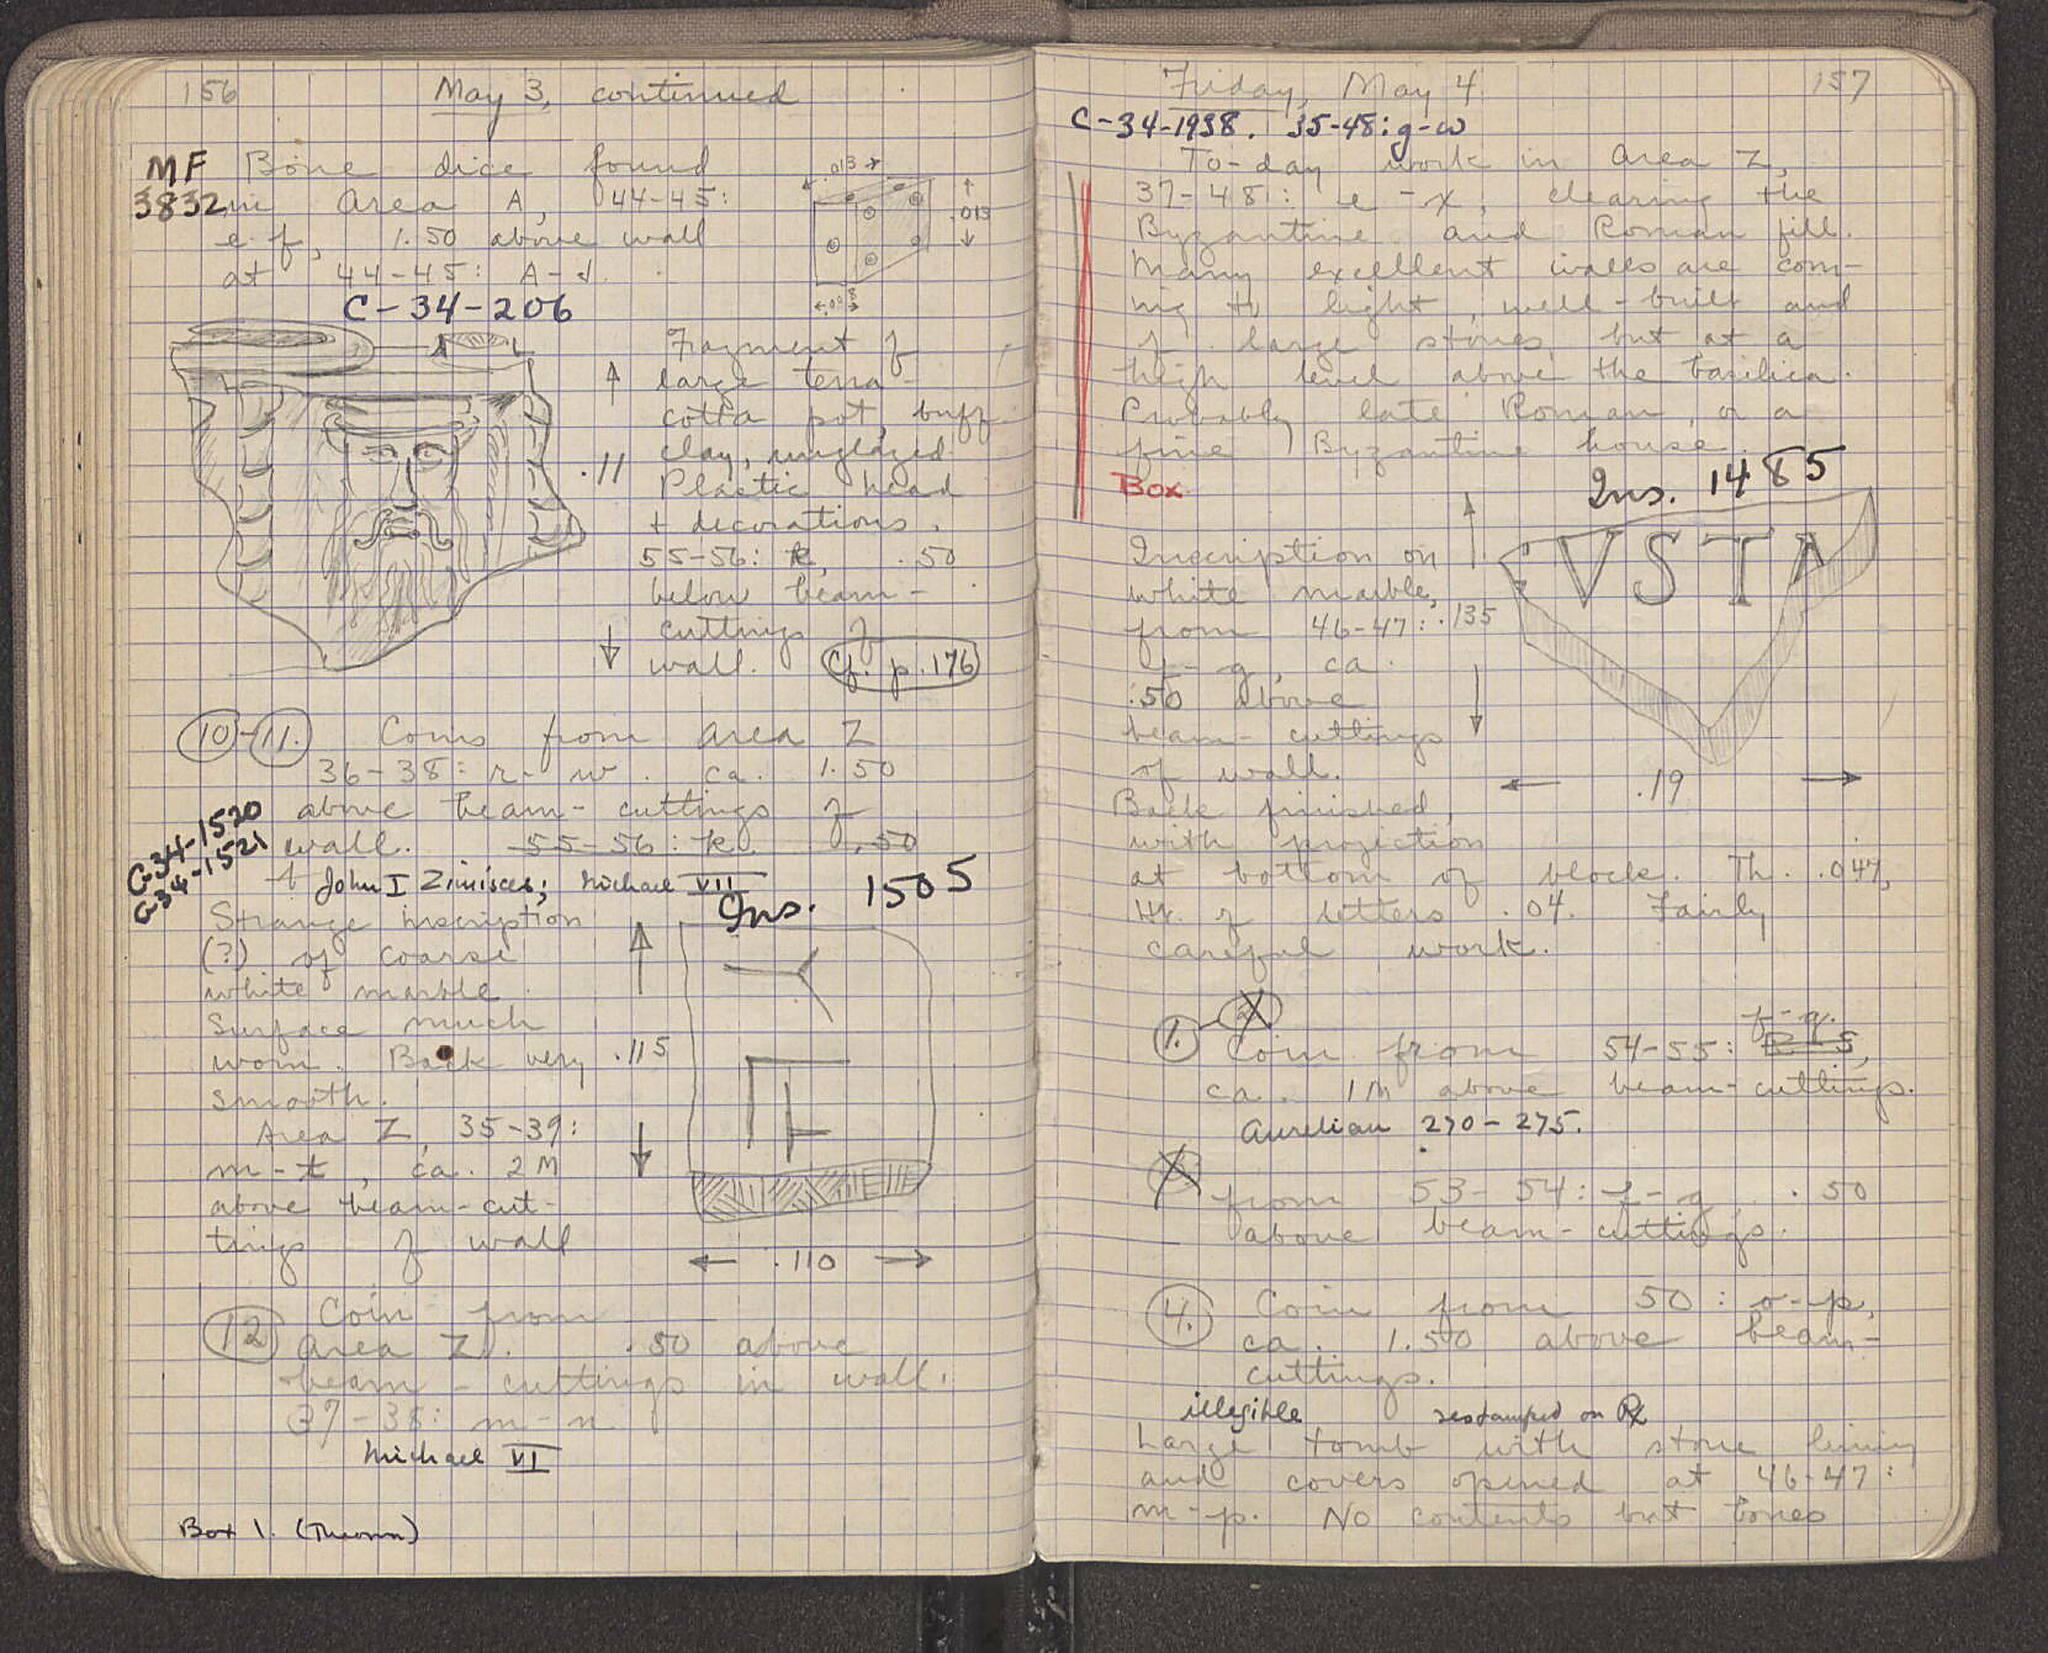 156
May 3, continued
MF
3832
Bone dice found
in Area A, 44-45:
e-f, 1.50 above wall
at 44-45: A-d.
.013
.013
C-34-206
Fragment of
large terra-
cotta pot, buff
clay, unglazed.
Plastic head
+ decorations.
55-56: k, .50
below beam-
cuttings of
wall. Cf. p. 176
.11
10-11. Coins from Area Z
36-38: r-w. ca. 1.50
above beam-cuttings of
wall. 55-56: k. .50
C-34-1520
C-34-1521
John I Zimisces; Michael VII
Ins. 1505
Strange inscription
(?) of coarse
white marble.
Surface much
worn. Back very
smooth.
Area Z, 35-39:
m-t, ca. 2 M
above beam-cut-
tings of wall
.115
.110
12 Coin from
Area Z. .50 above
beam-cuttings in wall.
37-38: m-n
Michael VI
Box 1.
Friday, May 4.
157
C-34-1938. 35-48: g-w
To-day work in Area Z,
37-48: e-x, clearing the
Byzantine and Roman fill.
Many excellent walls are com-
ing to light, well-built and
of large stones, but at a
high level above the basilica.
Probably late Roman, or a
fine Byzantine house.
Box
Ins. 1485
VSTA
Inscription on
white marble,
from 46-47:
f-g, ca.
.50 above
beam-cuttings
of wall.
.135
.19
Back finished,
with projection
at bottom of block. Th. .047,
Ht. of letters .04. Fairly
careful work.
1. - 2
f-g.
Coin from 54-55: R-S,
ca. 1 M above beam-cuttings.
Aurelian 270-275.
from 53-54: f-g, .50
above beam-cuttings.
4. Coin from 50: o-p,
ca. 1.50 above beam-
cuttings.
illegible restamped on R
Large tomb with stone lining
and covers opened at 46-47:
m-p. No contents but bones